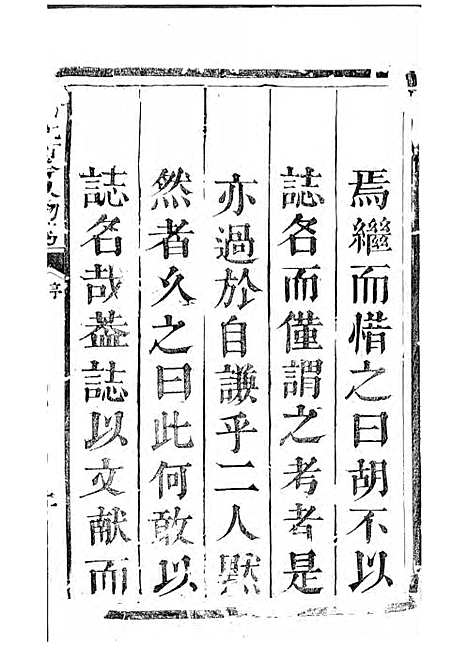 焉繼而惜之曰胡不以
誌名而僅謂之考者是
亦過於自謙乎二人黙
然者久之曰此何敢以
誌名哉葢誌以文献而
序